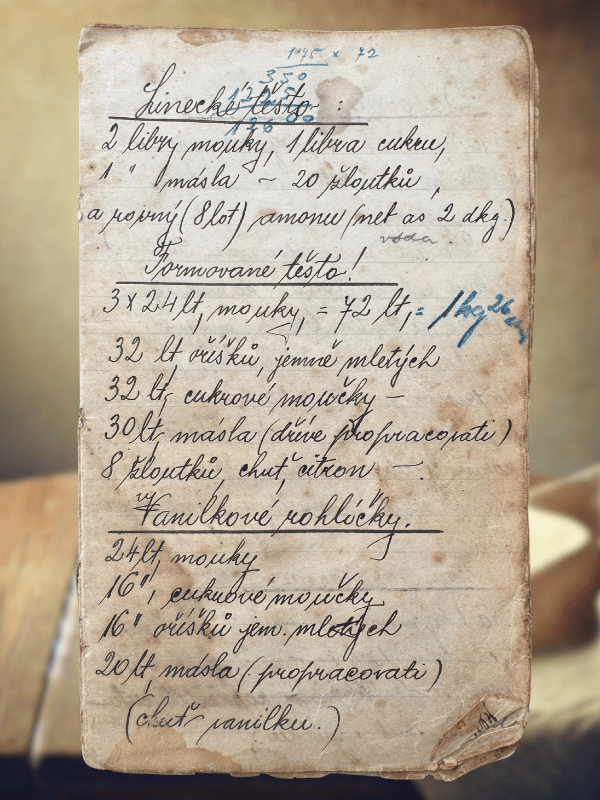 1.75 x 72
350
122 5
126 00
Linecké těsto :
2 libry mouky, 1 libra cukru,
1 " másla – 20 žloutků,
a rovný (8 lot) amonu (net as 2 dkg.)
voda
Formované těsto!
3 x 24 lt, mouky, = 72 lt, = 1 kg 26
32 lt, oříšků, jemně mletých
32 lt, cukrové moučky –
30 lt, másla (dříve propracovati)
8 žloutků, chuť, citron –.
Vanilkové rohlíčky.
24 lt, mouky
16", cukrové moučky
16" oříšků jem. mletých
20 lt, másla (propracovati)
(chuť vanilku.)